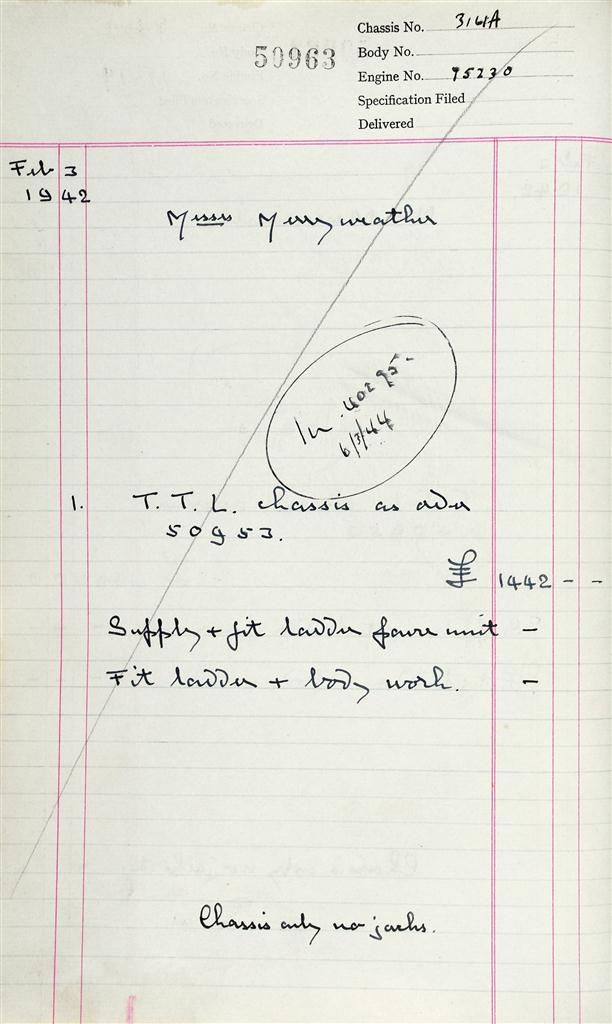 Chassis No. 3161A
50963
Body No.
Engine No. 95230
Specification Filed
Delivered
Feb 3
1942
Messrs Merryweather
In. 40295-
6/3/44
1. T. T. L. chassis as order
50953.
£ 1442 - -
Supply + fit ladder power unit -
Fit ladder + body work. -
Chassis only no jacks.